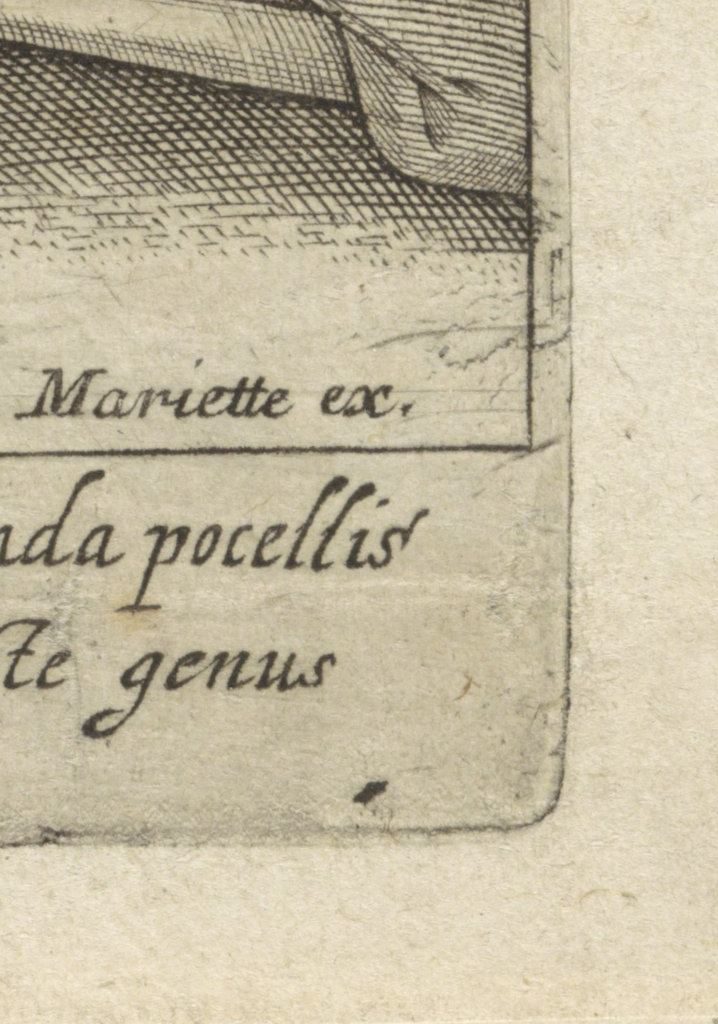 Mariette ex.
nda pocellis
te genus